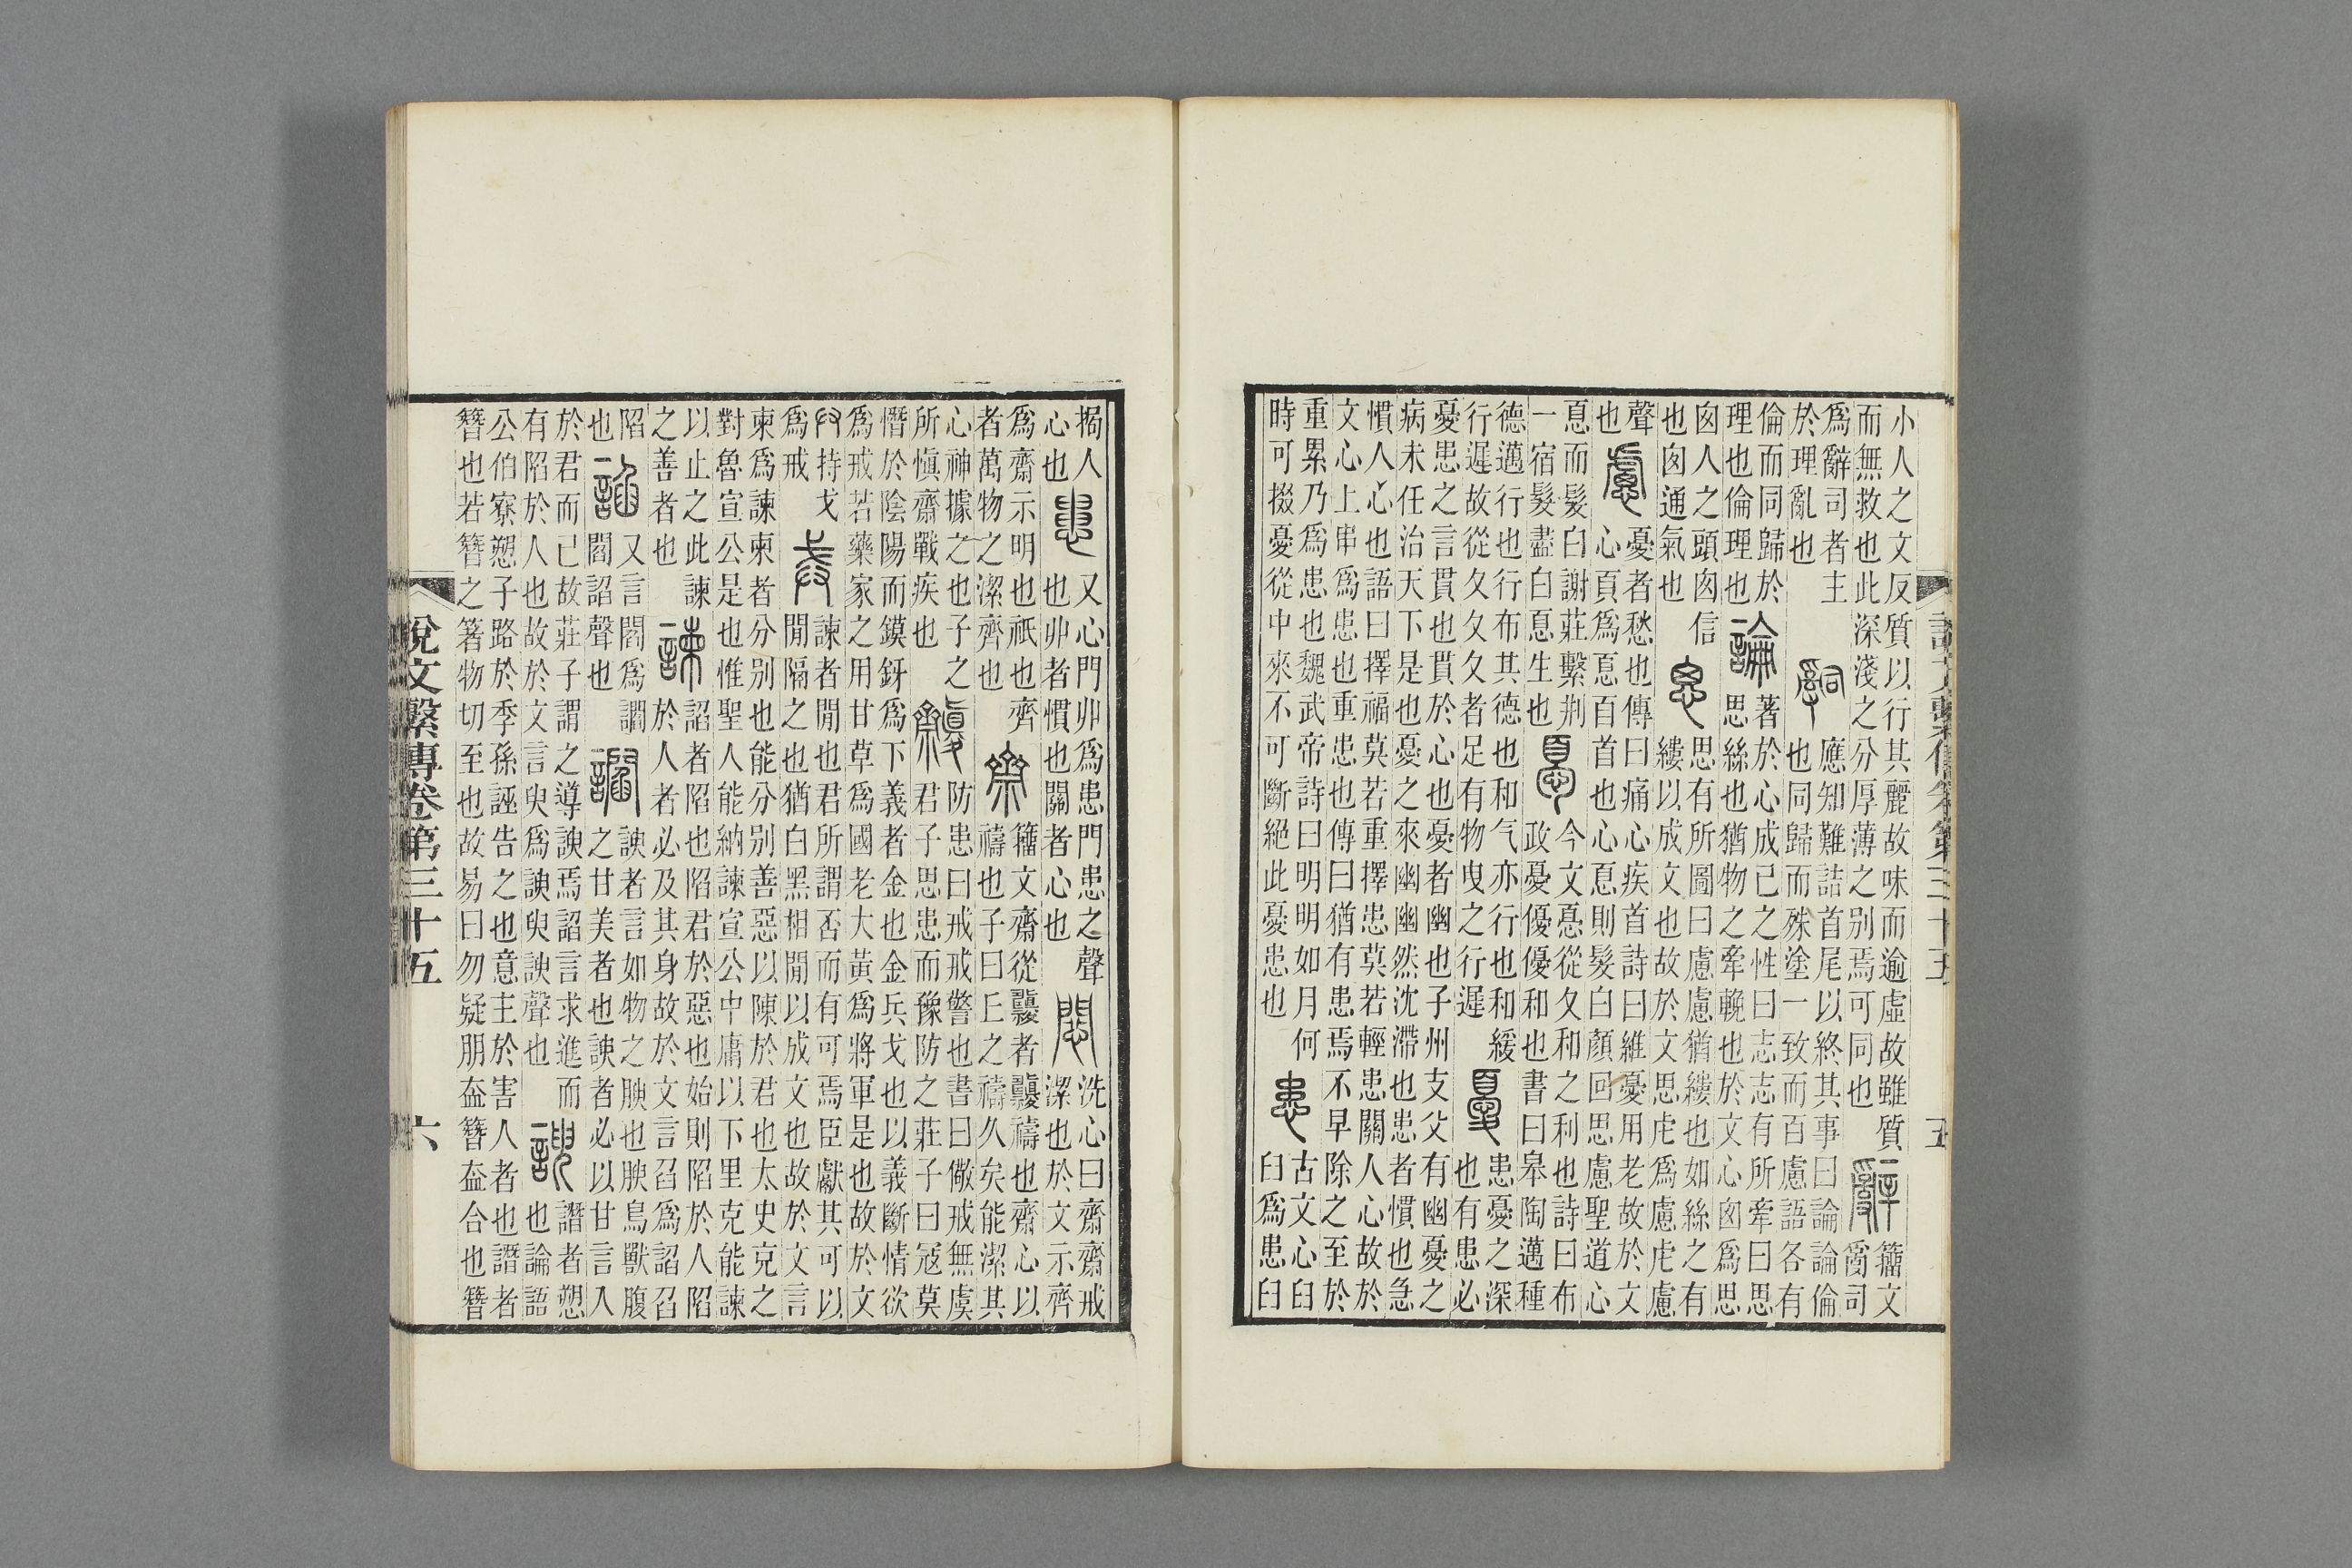 說文繫傳卷第三十五 五
小人之文反質以行其麗故味而逾虛故雖質
而無救也此深淺之分厚薄之別焉可同也
辭
籀文
𤔲司
爲辭司者主
於理亂也
嗣
應知難詰首尾以終其事曰論論倫
也同歸而殊塗一致而百慮語各有
倫而同歸於
理也倫理也
論
著於心成已之性曰志志有所牽曰思
思絲也猶物之牽輓也於文心囟爲思
囟人之頭囟信
也囟通氣也
思
思有所圖曰慮慮猶縷也如絲之有
縷以成文也故於文思虍爲慮虍慮
聲
也
慮
憂者愁也傳曰痛心疾首詩曰維憂用老故於文
心頁爲㥑百首也心㥑則髮白顏回思慮聖道心
㥑而髮白謝莊繫荆
一宿髮盡白㥑生也
㥑
今文㥑從夊和之利也詩曰布
政憂優優和也書曰皋陶邁種
德邁行也行布其德也和气亦行也和緩
行遲故從夊夊夊者足有物曳之行遲
憂
患憂之深
也有患必
憂患之言貫也貫於心也憂者幽也子州支父有幽憂之
病未任治天下是也憂之來幽幽然沈滯也患者慣也急
慣人心也語曰擇福莫若重擇患莫若輕患關人心故於
文心上串爲患也重患也傳曰猶有患焉不早除之至於
重累乃爲患也魏武帝詩曰明明如月何
時可掇憂從中來不可斷絕此憂患也
患
古文心𦥑
𦥑爲患𦥑
挶人
心也
患
又心門丱爲患門患之聲
也丱者慣也關者心也
洗心曰齋齋戒
潔也於文示齊
爲齋示明也祇也齊
者萬物之潔齊也
齋
籀文齋從者禱也齋心以
禱也子曰丘之禱久矣能潔其
心神據之也子之
所慎齋戰疾也
防患曰戒戒警也書曰儆戒無虞
君子思患而豫防之莊子曰寇莫
憯於陰陽而鏌釾爲下義者金也金兵戈也以義斷情欲
爲戒若藥家之用甘草爲國老大黃爲將軍是也故於文
廾持戈
爲戒
戒
諫者閒也君所謂否而有可焉臣獻其可以
閒隔之也猶白黑相閒以成文也故於文言
柬爲諫柬者分別也能分別善惡以陳於君也太史克之
對魯宣公是也惟聖人能納諫宣公中庸以下里克能諫
以止之此諫
之善者也
諫
諂者陷也陷君於惡也始則陷於人陷
於人者必及其身故於文言臽爲諂臽
陷
也
諂
又言閻爲讇
閻諂聲也
讇
諛者言如物之腴也腴鳥獸腹
之甘美者也諛者必以甘言入
於君而已故莊子謂之導諛焉諂言求進而
有陷於人也故於文言臾爲諛臾諛聲也
諛
譖者愬
也論語
公伯寮愬子路於季孫誣告之也意主於害人者也譖者
簪也若簪之箸物切至也故易曰勿疑朋盍簪盍合也簪
說文繫傳卷第三十五 六